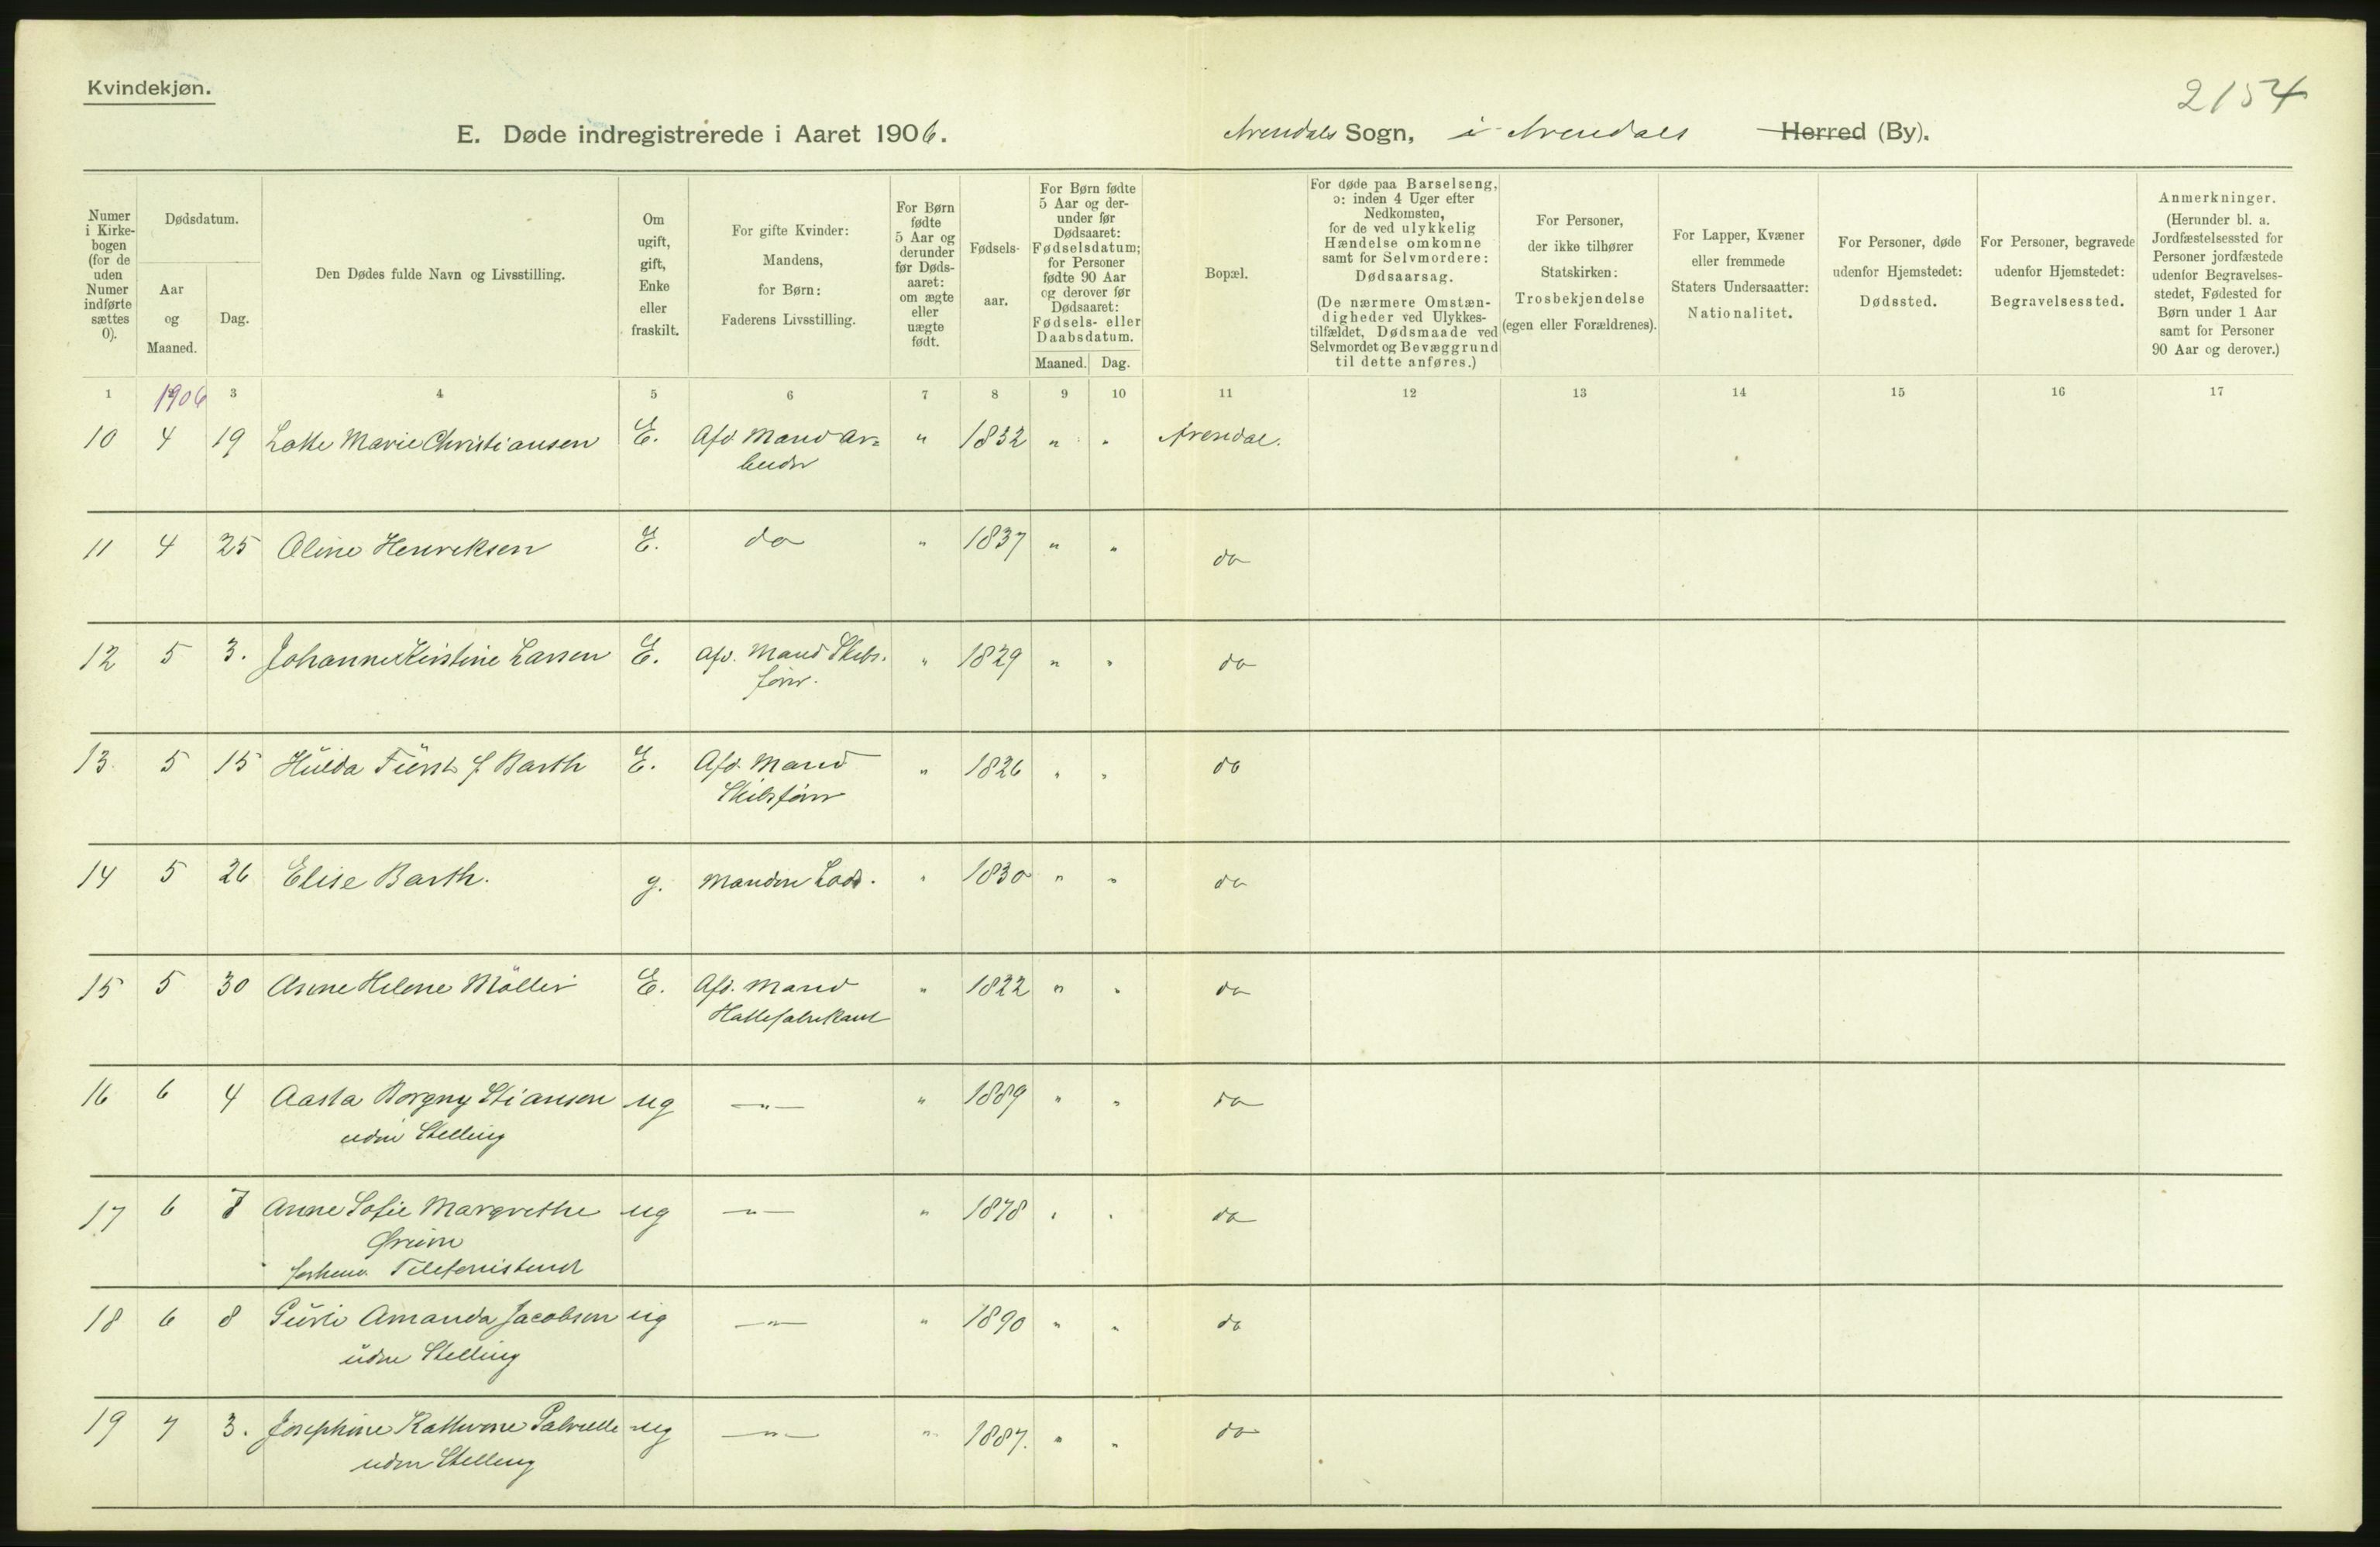 Kvindekjøn.
2154
E. Døde indregistrerede i Aaret 1906.
Arendals Sogn, i Arendals Herred (By).
Numer i Kirkebogen (for de uden Numer indførte sættes 0).
Dødsdatum.
Aar og Maaned.
Dag.
Den Dødes fulde Navn og Livsstilling.
Om ugift, gift, Enke eller fraskilt.
For gifte Kvinder: Mandens, for Børn: Faderens Livsstilling.
For Børn fødte 5 Aar og derunder før Dødsaaret: om ægte eller uægte født.
Fødselsaar.
For Børn fødte 5 Aar og derunder før Dødsaaret: Fødselsdatum; for Personer fødte 90 Aar og derover før Dødsaaret: Fødsels- eller Daabsdatum.
Maaned. Dag.
Bopæl.
For døde paa Barselseng, ɔ: inden 4 Uger efter Nedkomsten, for de ved ulykkelig Hændelse omkomne samt for Selvmordere: Dødsaarsag.
(De nærmere Omstændigheder ved Ulykkestilfældet, Dødsmaade ved Selvmordet og Bevæggrund til dette anføres.)
For Personer, der ikke tilhører Statskirken: Trosbekjendelse (egen eller Forældrenes).
For Lapper, Kvæner eller fremmede Staters Undersaatter: Nationalitet.
For Personer, døde udenfor Hjemstedet: Dødssted.
For Personer, begravede udenfor Hjemstedet: Begravelsessted.
Anmerkninger.
(Herunder bl. a. Jordfæstelsessted for Personer jordfæstede udenfor Begravelsesstedet, Fødested for Børn under 1 Aar samt for Personer 90 Aar og derover.)
1 3 4 5 6 7 8 9 10 11 12 13 14 15 16 17
1906
10 4 19 Lotte Marie Christiansen E. Afd Mand Ar= " 1832 " " Arendal.
beider
11 4 25 Oline Henriksen E. do " 1837 " " do
12 5 3. Johanne Kirstine Larsen E. Afd. Mand Skibs. " 1829 " " do
fører.
13 5 15 Hŭlda Fürst f. Barth E. Afd. Mand " 1826 " " do
Skibsfører
14 5 26 Elise Barth. g. Manden Lods. " 1830 " " do
15 5 30 Anne Helene Möller E. Afd. Mand " 1822 " " do
Hattefabrikant
16 6 4 Aasta Borgny Stiansen ug —"— " 1889 " " do
uden Stelling
17 6 7 Anne Sofie Margrethe ug —"— " 1878 " " do
forhenv. Telefonistinde
18 6 8 Gŭri Amanda Jacobsen ug —"— " 1890 " " do
ŭden Stelling
19 7 3. Josephine Kathrine ug —"— " 1887. " " do
uden Stelling